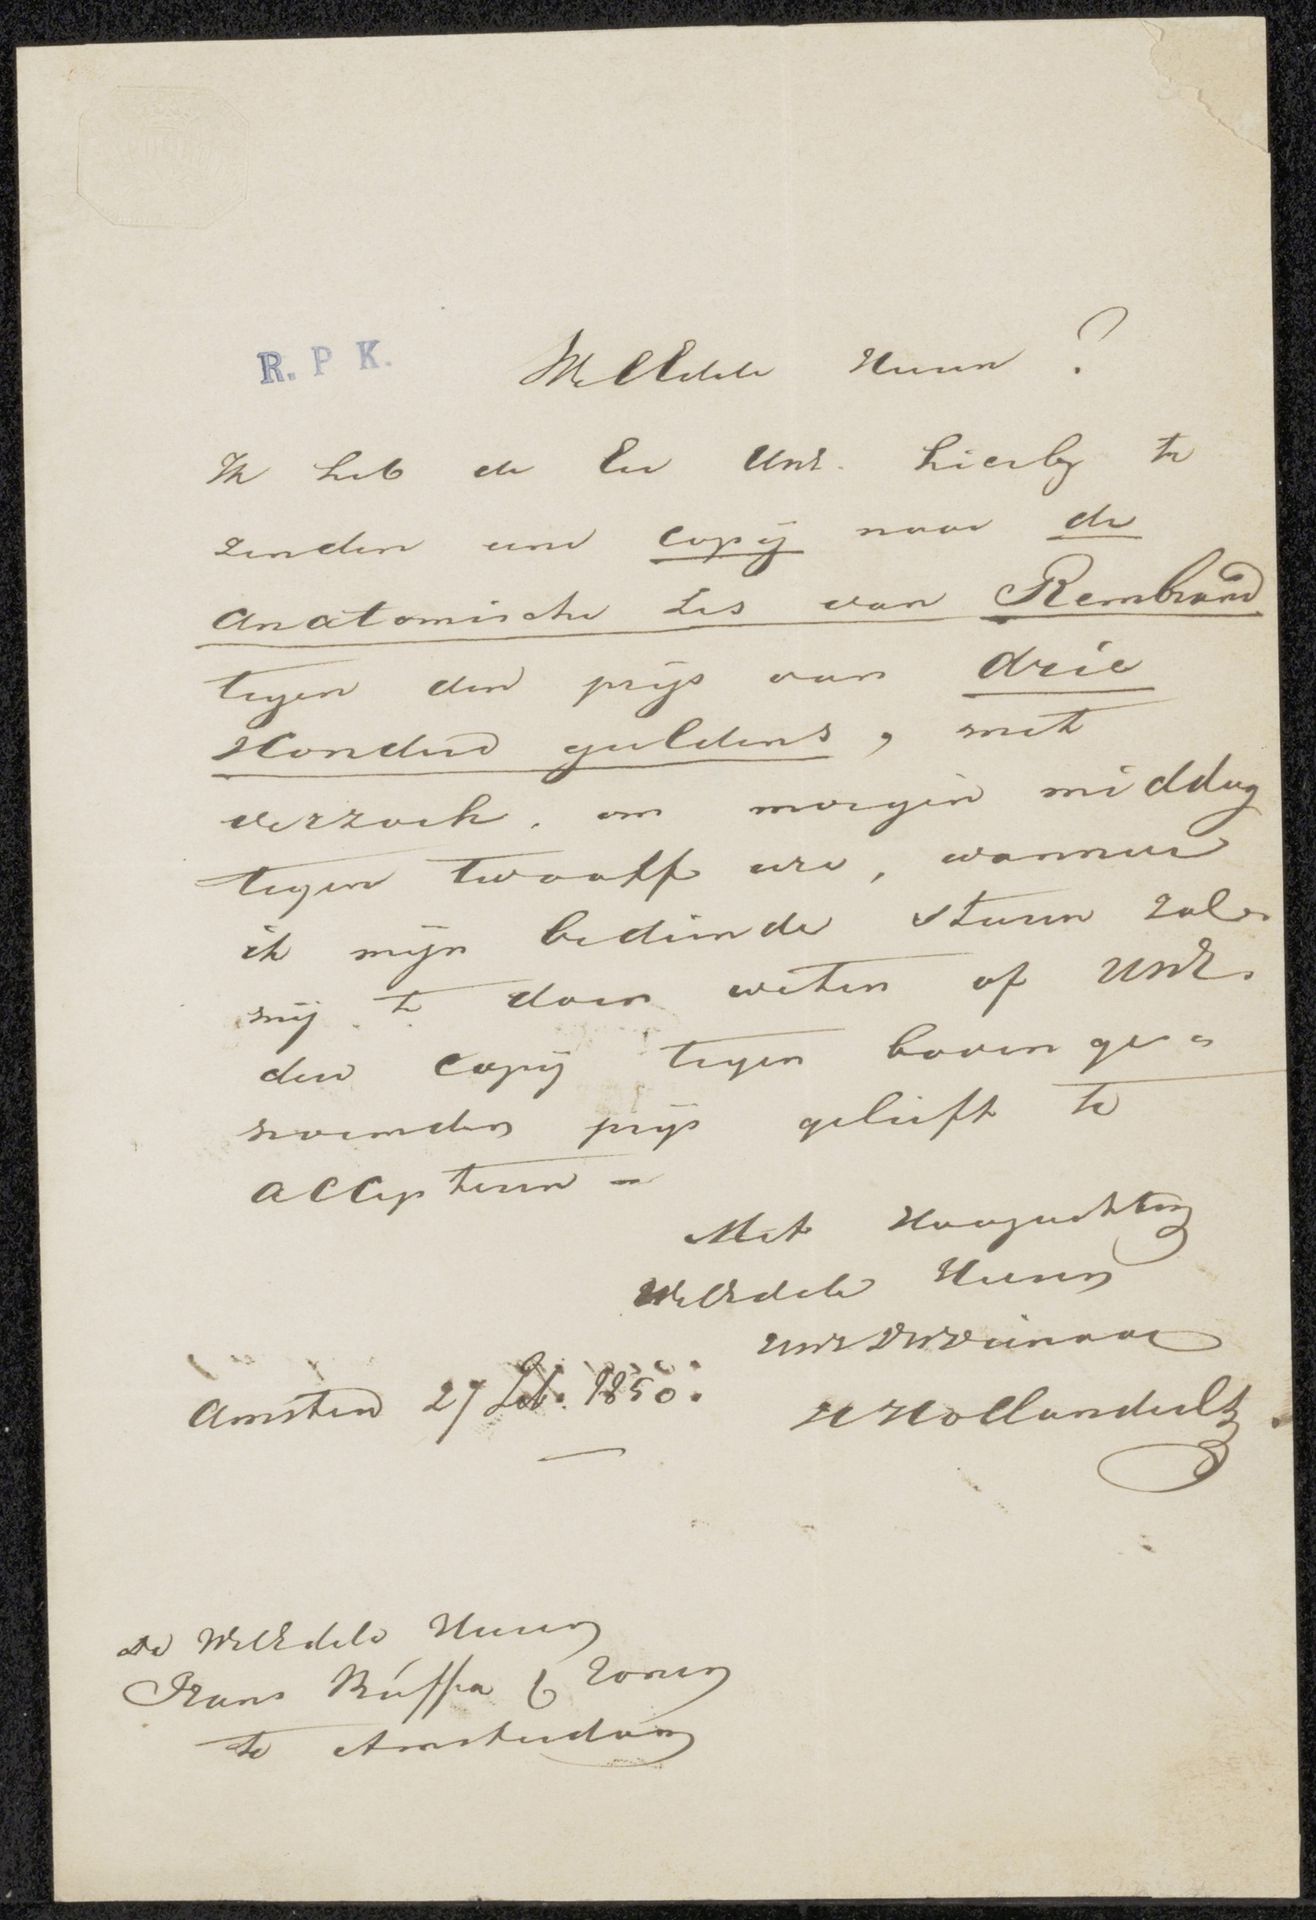 R. P K.
WelEdele Heeren ?
Ik heb de Eer UwE. hierbij te
zenden eene copij naar de
Anatomische Les van Rembrand
tegen den prijs van drie
Honderd guldens, met
verzoek. om morgen middag
tegen twaalf ure, wanneer
ik mijn bediende sturen zal
mij te doen weten of UwE.
deze copij tegen bovenge=
noemden prijs gelieft te
accepteeren =
Met Hoogachting
WelEdele Heeren
UwE DWDienaar
Amsterd 27 Feb. 1850.
H Hollander
De WelEdele Heeren
Frans Buffa & Zonen
te Amsterdam